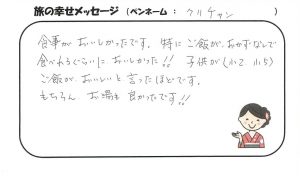 旅の幸せメッセージ (ペンネーム : クリチャン )
食事が おいしかったです。特に ご飯が、おかずなしで
食べれるぐらいに おいしかった!! 子供が (小2 小5)
ご飯が おいしいと 言ったほどです。
もちろん、お湯も 良かったです!!